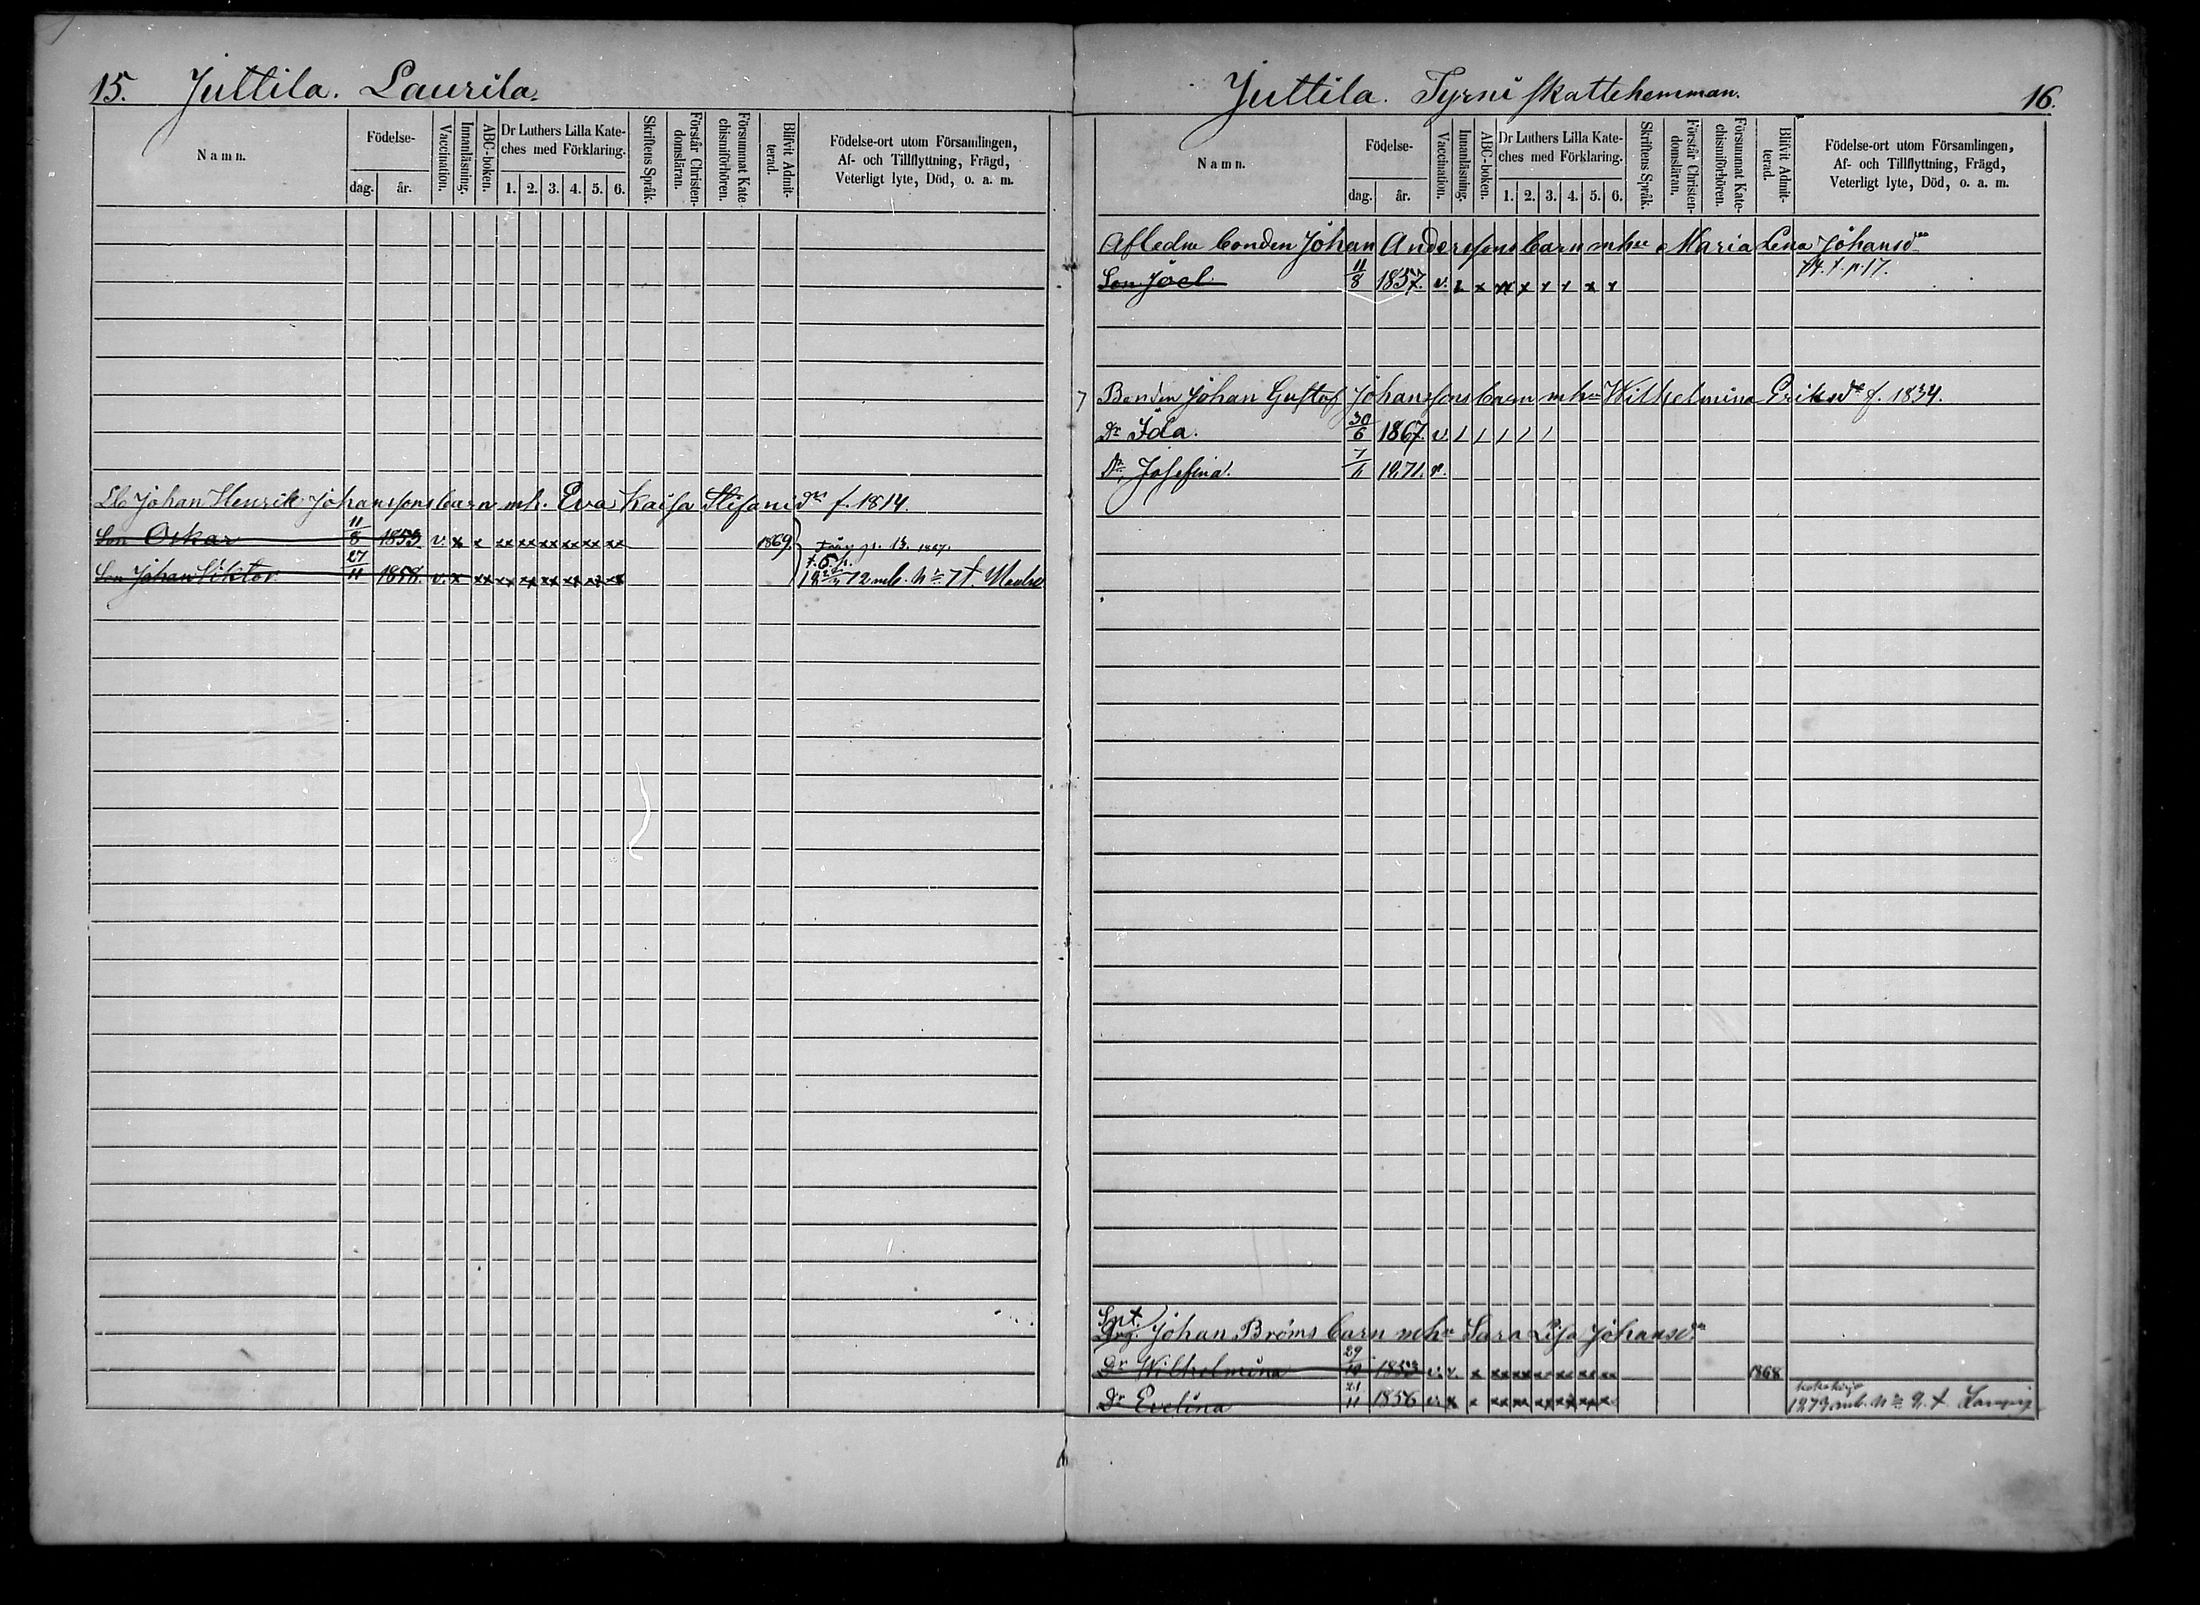 15. Juttila. Laurila.
Namn.
Födelse-
dag.
år.
Vaccination.
Innanläsning.
ABC-boken.
Dr Luthers Lilla Kate-
ches med Förklaring.
1. 2. 3. 4. 5. 6.
Skriftens Språk.
Förstår Christen-
domsläran.
Försummat Kate-
chismiförhören.
Blifvit Admit-
terad.
Födelse-ort utom Församlingen,
Af- och Tillflyttning, Frägd,
Veterligt lyte, Död, o. a. m.
Johan Henrik Johanssons barn mh. Eva Kaisa Stefansdr f. 1814.
Son Oskar 11/8 1853 v. x x xx xx xx xx xx xx 1869.
Son Johan Viktor 27/11 1858. v. x xx xx xx xx xx xx x 1872 mb. No 7 t.
Juttila. Tyrni skattehemman. 16.
Namn.
Födelse-
dag.
år.
Vaccination.
Innanläsning.
ABC-boken.
Dr Luthers Lilla Kate-
ches med Förklaring.
1. 2. 3. 4. 5. 6.
Skriftens Språk.
Förstår Christen-
domsläran.
Försummat Kate-
chismiförhören.
Blifvit Admit-
terad.
Födelse-ort utom Församlingen,
Af- och Tillflyttning, Frägd,
Veterligt lyte, Död, o. a. m.
Afledne bonden Johan Anderssons barn mhu Maria Lena Johansdr
Son Joel. 11/8 1857. v. x x x x x x x p. 17.
Bonden Johan Gustaf Johanssons barn mhu Wilhelmina Eriksdr f. 1834.
Dr Ida. 30/6 1867. v / / / / /
Dr Josefina. 7/11 1871. v.
Johan Bröms barn mhu Sara Lisa Johansdr
Dr Wilhelmina 29/10 1853 v. v. x xx xx xx xx xx xx 1868
Dr Evelina 21/11 1856 v. x x xx xx xx xx xx xx 1873 mb. No 9. t.